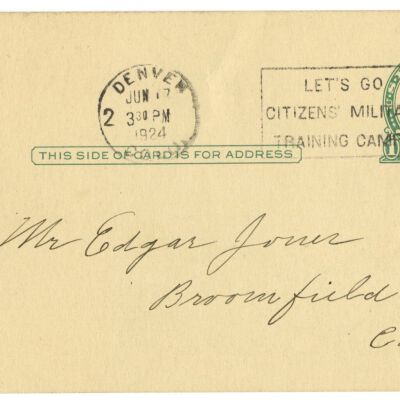 DENVER
JUN 17
2 3 30 PM
1924
COLO.
LET'S GO
CITIZENS' MILITA
TRAINING CAMP
THIS SIDE OF CARD IS FOR ADDRESS
Mr Edgar Jones
Broomfield
C